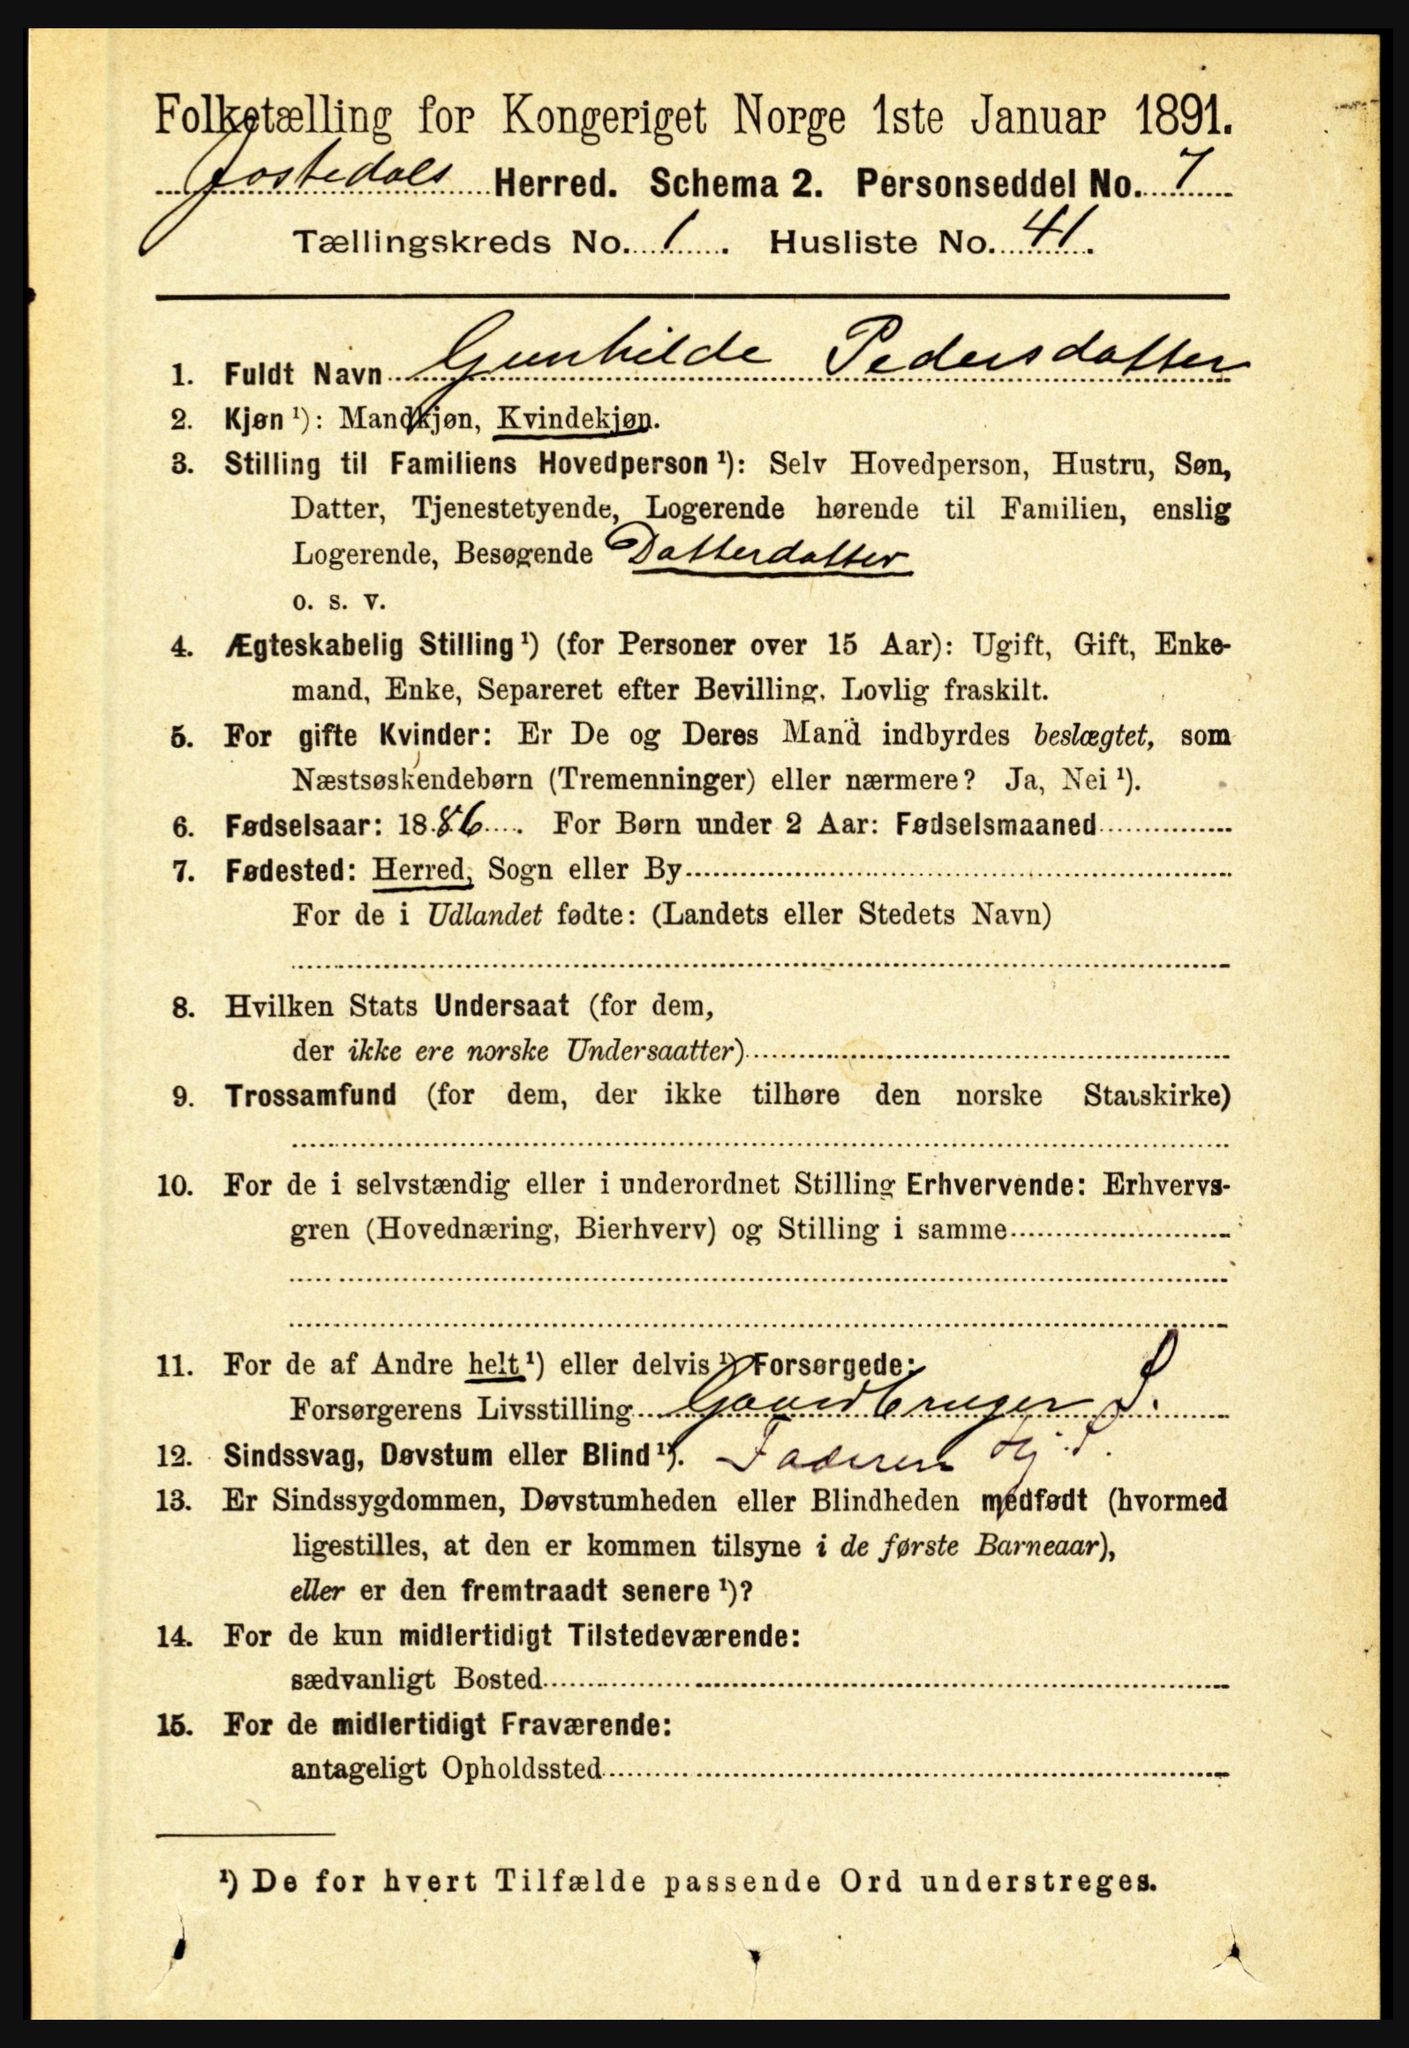 Folketælling for Kongeriget Norge 1ste Januar 1891.
Jostedals Herred. Schema 2. Personseddel No. 7
Tællingskreds No. 1. Husliste No. 41.
1. Fuldt Navn Gunhilde Pedersdatter
2. Kjøn ¹): Mandkjøn, Kvindekjøn.
3. Stilling til Familiens Hovedperson ¹): Selv Hovedperson, Hustru, Søn,
Datter, Tjenestetyende, Logerende hørende til Familien, enslig
Logerende, Besøgende Datterdatter
o. s. v.
4. Ægteskabelig Stilling ¹) (for Personer over 15 Aar): Ugift, Gift, Enke-
mand, Enke, Separeret efter Bevilling, Lovlig fraskilt.
5. For gifte Kvinder: Er De og Deres Mand indbyrdes beslægtet, som
Næstsøskendebørn (Tremenninger) eller nærmere? Ja, Nei ¹).
6. Fødselsaar: 1886. For Børn under 2 Aar: Fødselsmaaned
7. Fødested: Herred, Sogn eller By
For de i Udlandet fødte: (Landets eller Stedets Navn)
8. Hvilken Stats Undersaat (for dem,
der ikke ere norske Undersaatter)
9. Trossamfund (for dem, der ikke tilhøre den norske Statskirke)
10. For de i selvstændig eller i underordnet Stilling Erhvervende: Erhvervs-
gren (Hovednæring, Bierhverv) og Stilling i samme
11. For de af Andre helt ¹) eller delvis ¹) Forsørgede:
Forsørgerens Livsstilling Gaardbruger S.
12. Sindssvag, Døvstum eller Blind ¹). Faderen
13. Er Sindssygdommen, Døvstumheden eller Blindheden medfødt (hvormed
ligestilles, at den er kommen tilsyne i de første Barneaar),
eller er den fremtraadt senere ¹)?
14. For de kun midlertidigt Tilstedeværende:
sædvanligt Bosted
15. For de midlertidigt Fraværende:
antageligt Opholdssted
¹) De for hvert Tilfælde passende Ord understreges.